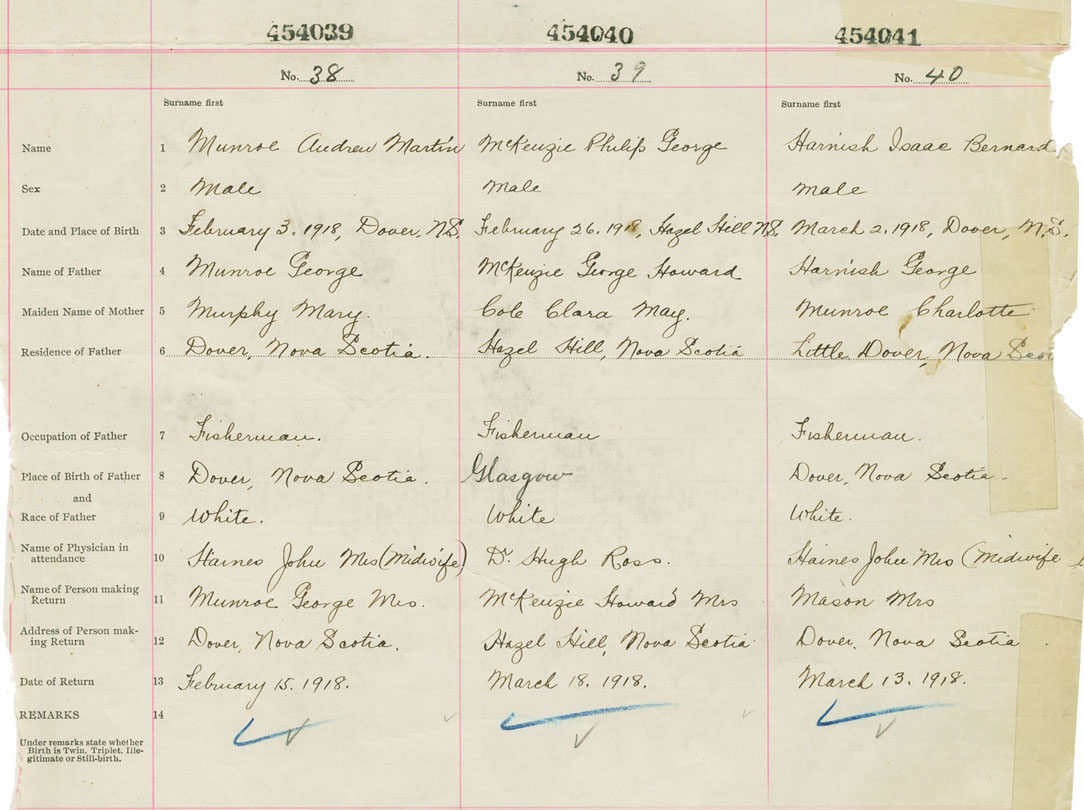 454039 454040 454041
No. 38 No. 39 No. 40
Surname first Surname first Surname first
Name 1 Munroe Andrew Martin McKenzie Philip George Harnish Isaac Bernard
Sex 2 Male Male Male
Date and Place of Birth 3 February 3. 1918, Dover, N.S. February 26. 1918, Hazel Hill N.S. March 2. 1918, Dover, N.S.
Name of Father 4 Munroe George McKenzie George Howard Harnish George
Maiden Name of Mother 5 Murphy Mary. Cole Clara May. Munroe Charlotte
Residence of Father 6 Dover, Nova Scotia. Hazel Hill, Nova Scotia Little Dover, Nova Scoti
Occupation of Father 7 Fisherman. Fisherman Fisherman.
Place of Birth of Father 8 Dover, Nova Scotia. Glasgow Dover, Nova Scotia.
and
Race of Father 9 White. White White.
Name of Physician in
attendance 10 Haines John Mrs (Midwife) Dr. Hugh Ross. Haines John Mrs (Midwife
Name of Person making
Return 11 Munroe George Mrs. McKenzie Howard Mrs Mason Mrs
Address of Person mak-
ing Return 12 Dover, Nova Scotia. Hazel Hill, Nova Scotia Dover, Nova Scotia
Date of Return 13 February 15. 1918. March 18. 1918. March 13. 1918.
REMARKS 14
Under remarks state whether
Birth is Twin, Triplet, Ille-
gitimate or Still-birth.